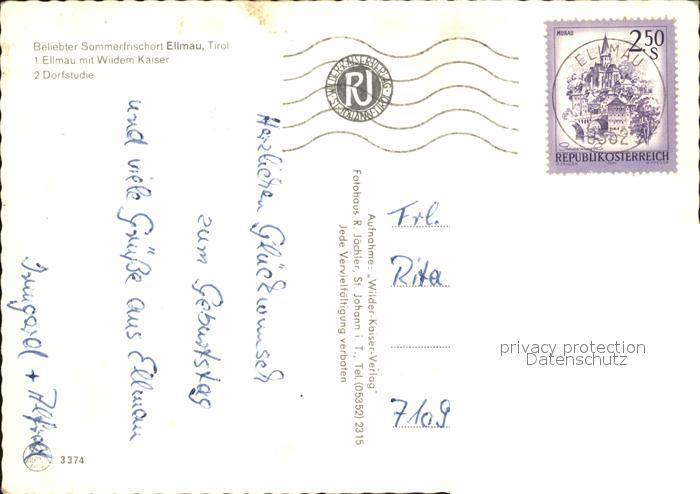 Beliebter Sommerfrischort Ellmau, Tirol
1 Ellmau mit Wildem Kaiser
2 Dorfstudie
Herzlichen Glückwunsch
zum Geburtstag
und viele Grüße aus Ellmau
Irmgard + Alfred
3374
Aufnahme: „Wilder-Kaiser-Verlag"
Fotohaus R. Jöchler, St. Johann i. T., Tel. (05352) 2315
Jede Vervielfältigung verboten
RJ
MURAU
2.50
S
ELLMAU
REPUBLIK ÖSTERREICH
Frl.
Rita
7109
privacy protection
Datenschutz